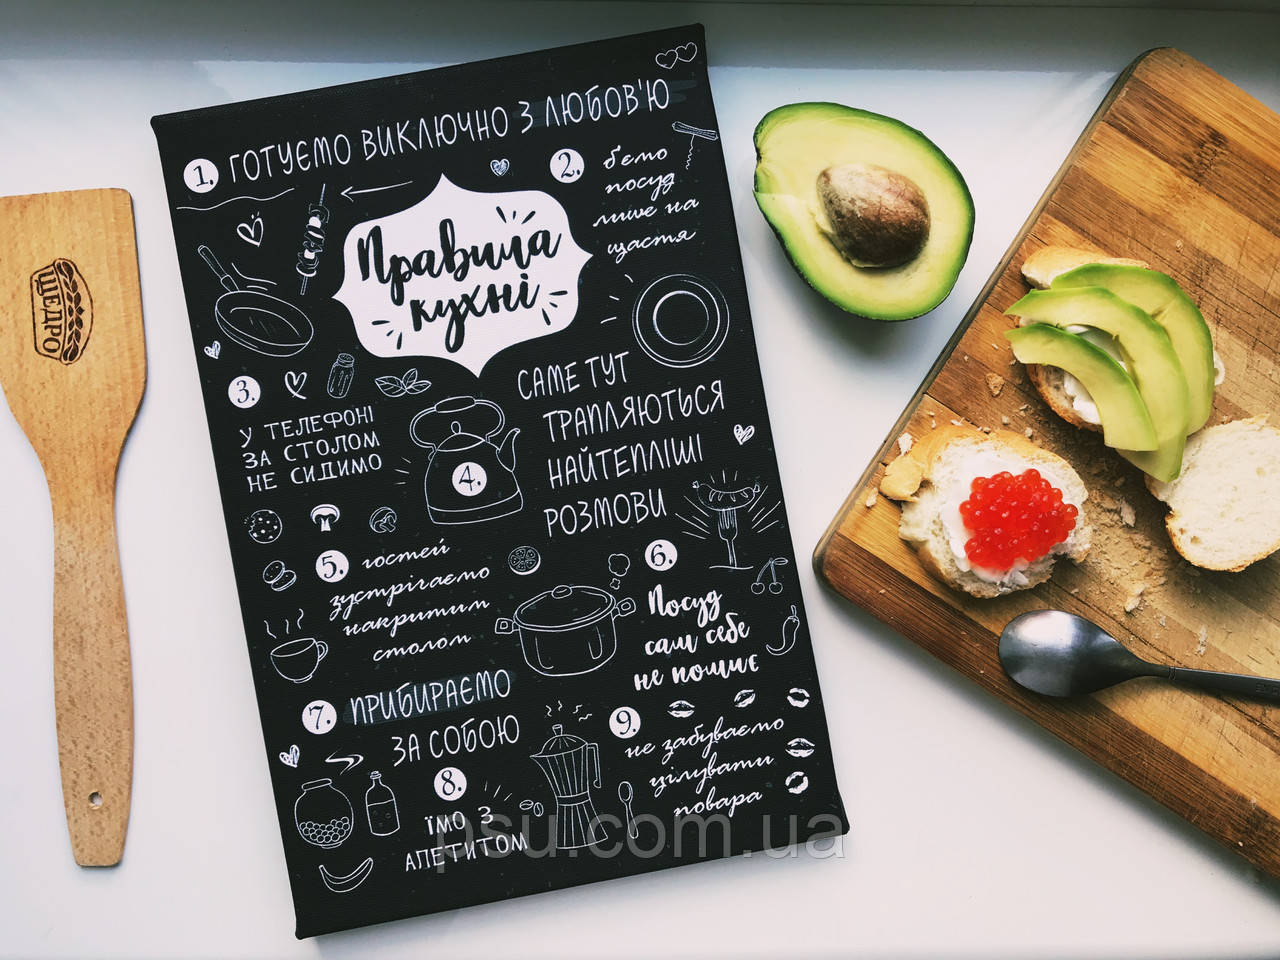 1. ГОТУЄМО ВИКЛЮЧНО З ЛЮБОВ'Ю
2. б'ємо
посуд
лише на
щастя
Правила
кухні
3.
У ТЕЛЕФОНІ
ЗА СТОЛОМ
НЕ СИДИМО
4.
САМЕ ТУТ
ТРАПЛЯЮТЬСЯ
НАЙТЕПЛІШІ
РОЗМОВИ
5. гостей
зустрічаємо
накритим
столом
6.
Посуд
сам себе
не помиє
7. ПРИБИРАЄМО
ЗА СОБОЮ
8.
ЇМО З
АПЕТИТОМ
9.
не забуваємо
цілувати
повара
ЩЕДРО
psu.com.ua